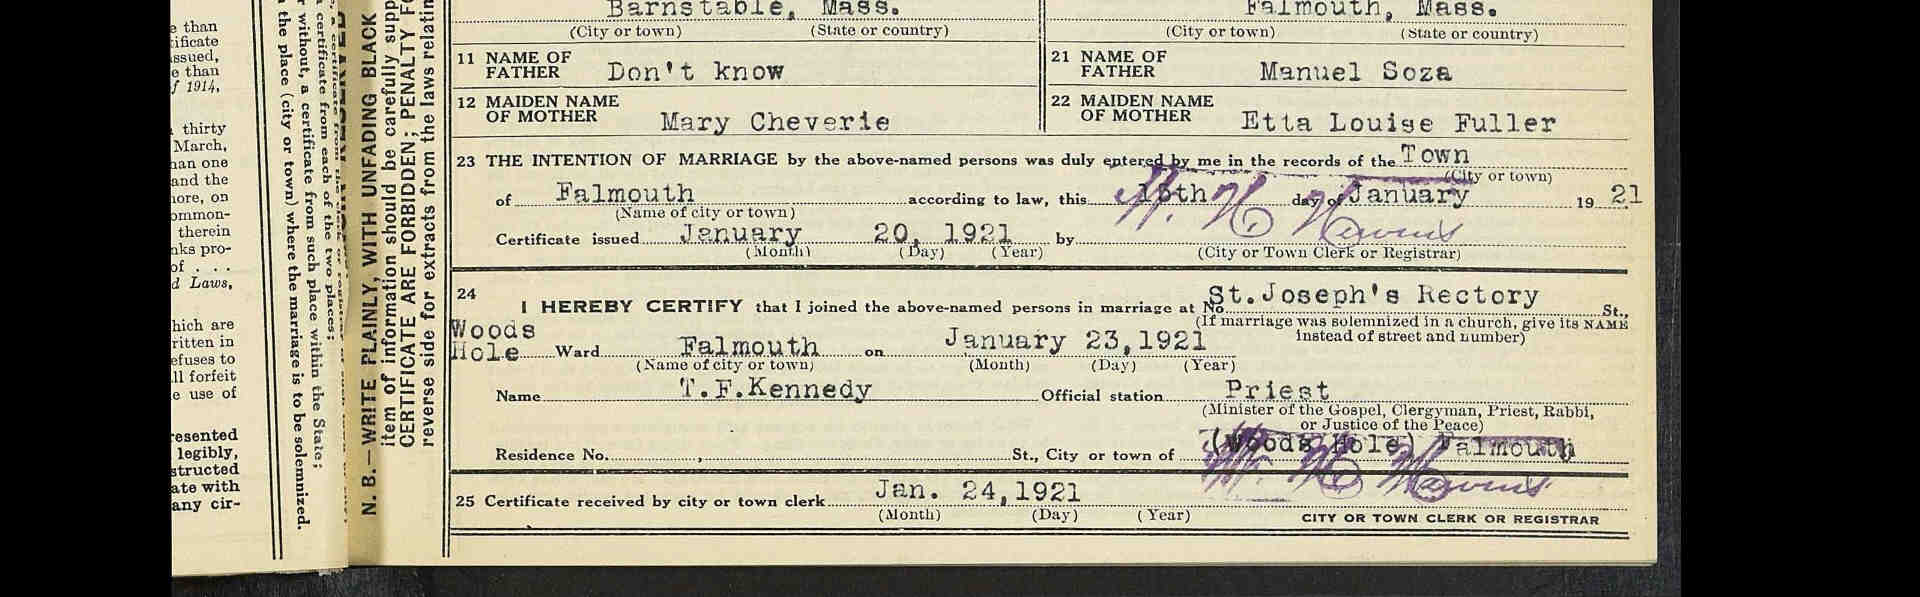 e than
tificate
issued,
e than
f 1914,
thirty
March,
han one
and the
more, on
ommon-
therein
nks pro-
of . . .
d Laws,
hich are
ritten in
efuses to
ll forfeit
e use of
resented
legibly,
structed
ate with
any cir-
the place (city or town) where the marriage is to be solemnized.
r without, a certificate from such place within the State;
a certificate from each of the two places;
N. B.—WRITE PLAINLY, WITH UNFADING BLACK
item of information should be carefully supp
CERTIFICATE ARE FORBIDDEN; PENALTY FO
reverse side for extracts from the laws relatin
Barnstable, Mass.
(City or town) (State or country)
11 NAME OF FATHER Don't know
12 MAIDEN NAME OF MOTHER Mary Cheverie
Falmouth, Mass.
(City or town) (State or country)
21 NAME OF FATHER Manuel Soza
22 MAIDEN NAME OF MOTHER Etta Louise Fuller
23 THE INTENTION OF MARRIAGE by the above-named persons was duly entered by me in the records of the Town
(City or town)
of Falmouth according to law, this 15th day of January 19 21
(Name of city or town)
Certificate issued January 20, 1921 by
(Month) (Day) (Year) (City or Town Clerk or Registrar)
24 I HEREBY CERTIFY that I joined the above-named persons in marriage at No. St.Joseph's Rectory St.,
(If marriage was solemnized in a church, give its NAME
instead of street and number)
Woods
Hole Ward Falmouth on January 23,1921
(Name of city or town) (Month) (Day) (Year)
Name T.F.Kennedy Official station Priest
(Minister of the Gospel, Clergyman, Priest, Rabbi,
or Justice of the Peace)
Residence No. , St., City or town of (Woods Hole) Falmouth
25 Certificate received by city or town clerk Jan. 24,1921
(Month) (Day) (Year) CITY OR TOWN CLERK OR REGISTRAR